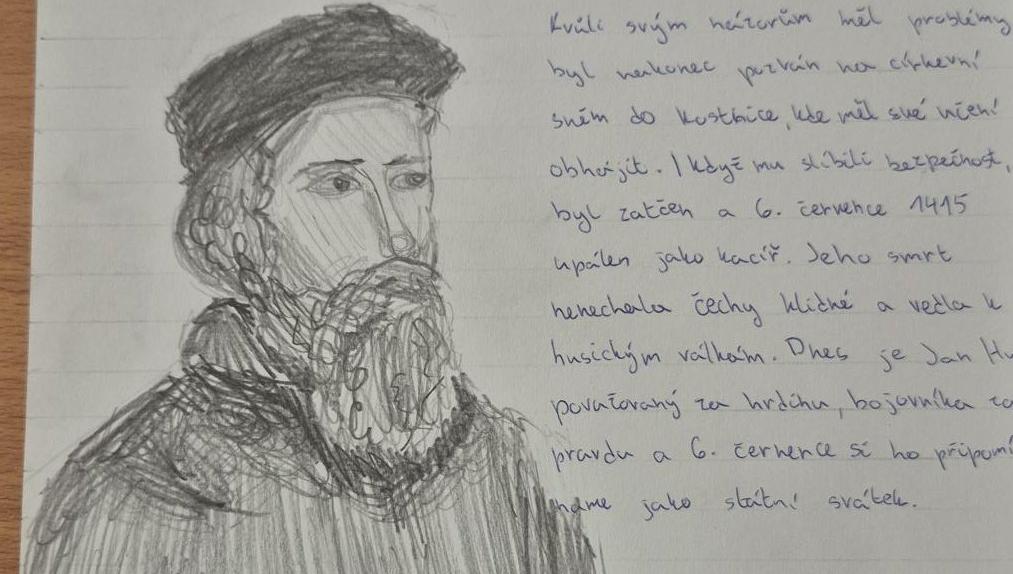 Kvůli svým názorům měl problémy
byl nakonec pozván na církevní
sněm do Kostnice, kde měl své učení
obhájit. I když mu slíbili bezpečnost,
byl zatčen a 6. července 1415
upálen jako kacíř. Jeho smrt
nenechala čechy klidné a vedla k
husickým válkám. Dnes je Jan Hu
považovaný za hrdinu, bojovníka za
pravdu a 6. července si ho připomí
náme jako státní svátek.